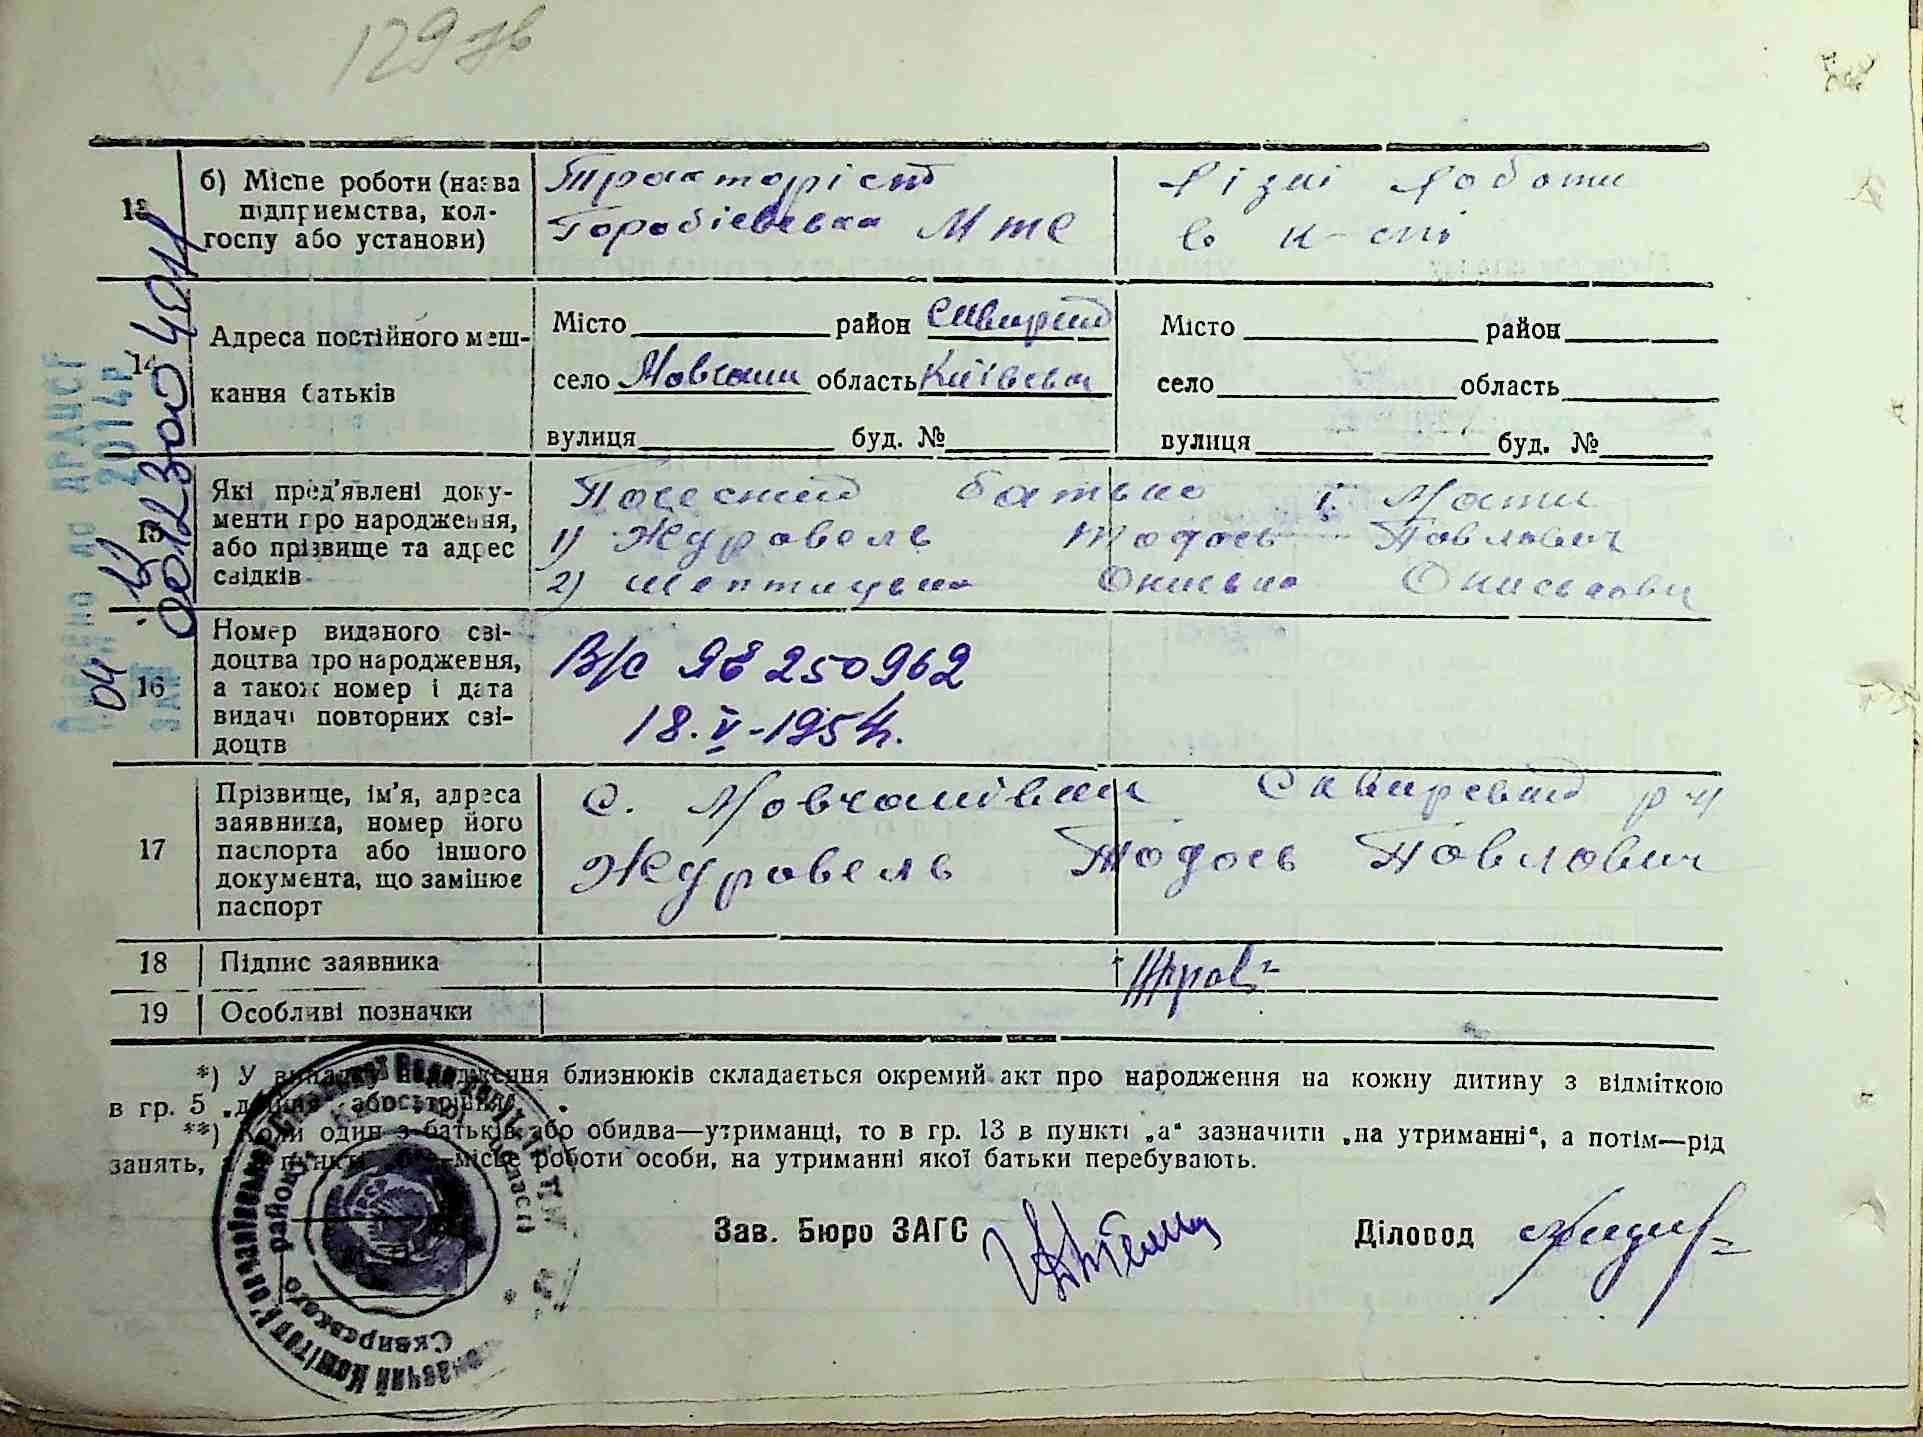 129 зв
13 б) Місце роботи (назва підприємства, колгоспу або установи)
Тракторіст
Горобієвська МТС
Різні роботи
в к-спі
14 Адреса постійного мешкання батьків
Місто район Сквирсий
село Мовчани область Київська
вулиця буд. №
Місто район
село область
вулиця буд. №
15 Які пред'явлені документи про народження, або прізвище та адрес свідків
батько і Мати
1) Журавель Тодось Павлович
2) Шептицька
16 Номер виданого свідоцтва про народження, а також номер і дата видачі повторних свідоцтв
250962
18.V-1954р.
17 Прізвище, ім'я, адреса заявника, номер його паспорта або іншого документа, що замінює паспорт
с. Мовчанівка Сквирський р-н
Журавель Тодось Павлович
18 Підпис заявника
19 Особливі позначки
*) У випадку народження близнюків складається окремий акт про народження на кожну дитину з відміткою
в гр. 5 „двійня" або „трійня".
**) Коли один з батьків або обидва—утриманці, то в гр. 13 в пункті „а" зазначити „на утриманні", а потім—рід
занять, місце роботи особи, на утриманні якої батьки перебувають.
Зав. Бюро ЗАГС
Діловод
Сквирського району
00123004011
ДО ДРАЦСГ
2014р